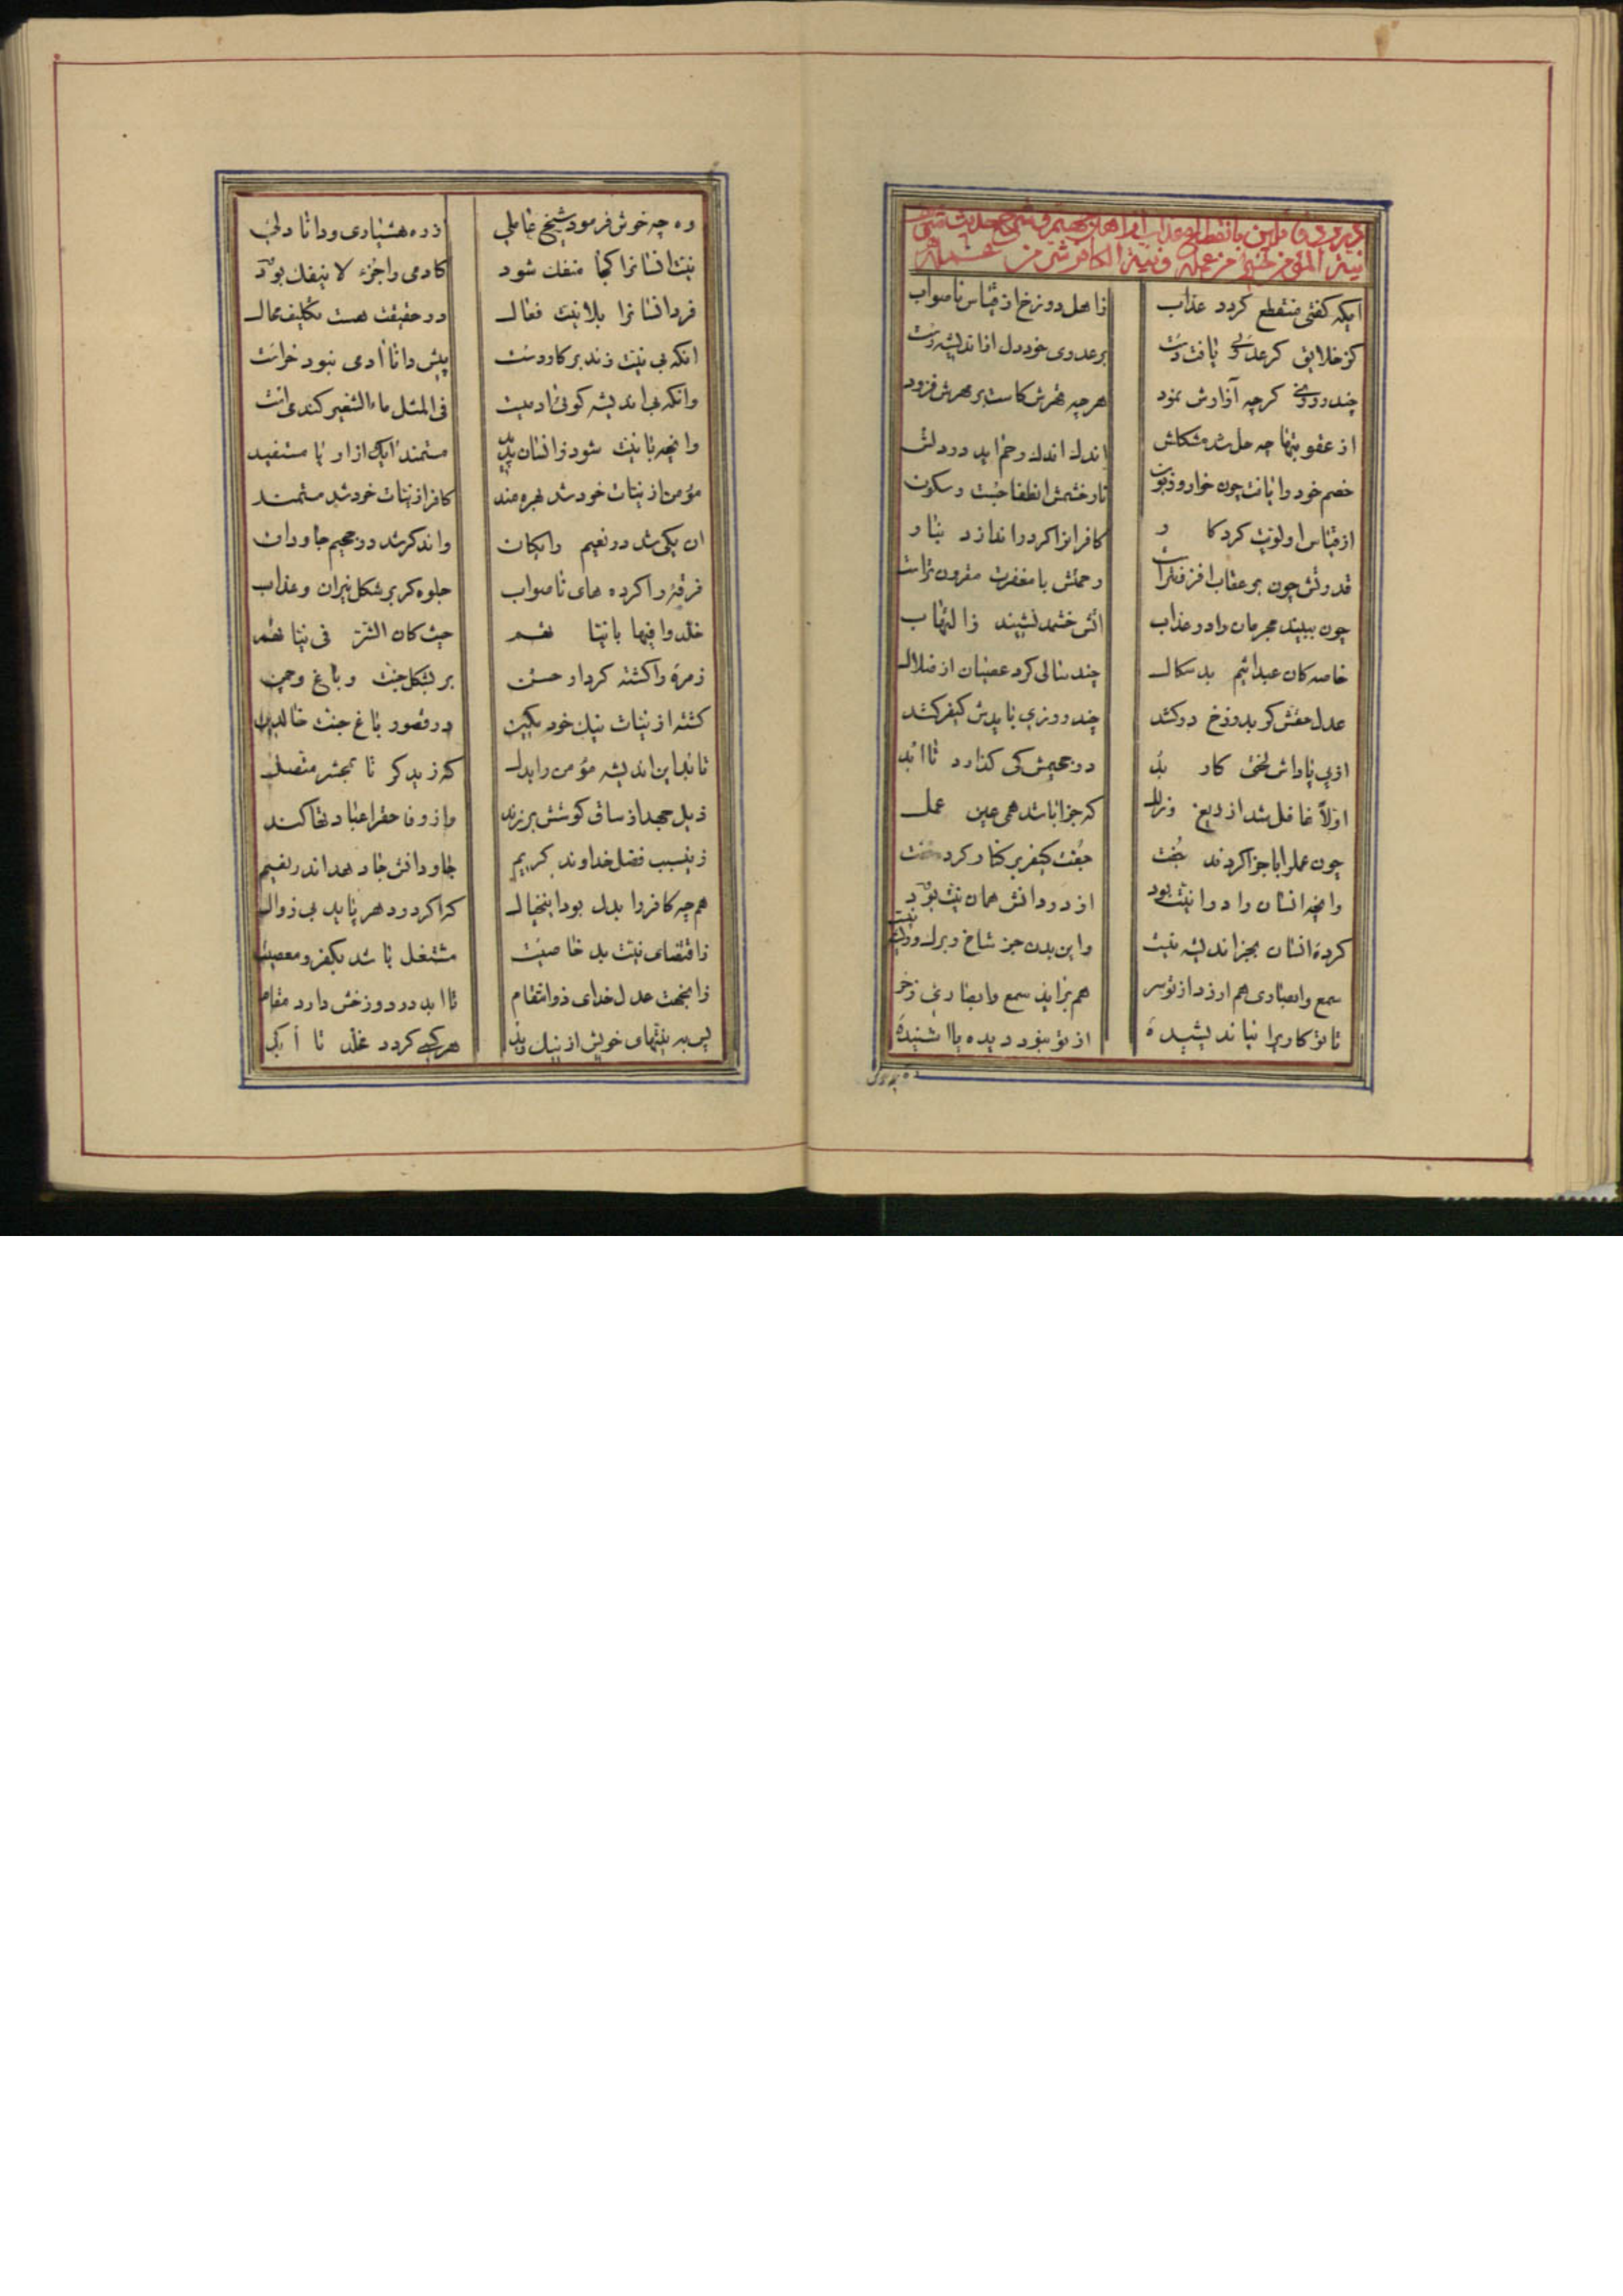 نیة المؤمن خیر من عمله و نیة الکافر شر من عمله
ایکه کفتی منقطع کردد عذاب زاهل دوزخ از قیاس ناصواب
کز خلایق کر عدوی یافت دست بر عدوی خود دل از اندیشه
چند روزی کرچه آزارش نمود هرچه قهرش کاست بر مهرش فزود
از عقوبتها چه حل شد مشکلش اندك اندك رحم اید در دلش
خصم خود را یافت چون خوار و زبون نار خشمش انطفا جست و سکون
از قیاس اولویت کرد کار کافرانرا کرد را اندازد بنار
قدرتش چون بر عقاب افزونتر است رحمتش با مغفرت مقرون تر است
چون ببیند مجرمان را در عذاب اتش خشمش نشیند ز التهاب
خاصه کان عبد اثیم بد سکال چند سالی کرد عصیان از ضلال
عدل حقش کو بدوزخ در کشد چند روزی بایدش کیفر کشد
از پی پاداش لختی کار بد در جحیمش کی کذارد تا ابد
اولاً غافل شد از ریغ و زلل که جزا باشد همی عین عمل
چون عمل را با جزا کردند جفت جفت کیفر بر کنار کرد خفت
وانچه انسان را روا نیت بود از در دانش همان نیت بود
کردهٔ انسان بجز اندیشه نیست واین بدن جز شاخ و برك و ریشه نیست
سمع وابصاری هم ارزد از تو سر هم بزاید سمع وابصاری زخر
تا تو کاریرا نیاندیشیدهٔ از تو نبود دیده یا اشنیدهٔ
وه چه خوش
وه چه خوش فرمود شیخ عاملی از ره هشیاری و دانا دلی
نیت انسانرا کجا منفك شود کادمی را جزء لا ینفك بود
فرد انسانرا بلا نیت فعال در حقیقت هست تکلیف محال
انکه بی نیت زند بر کار دست پیش دانا آدمی نبود خراست
وانکه بی اندیشه کوئی ادمیست فی المثل ماء الشعیر کندمی است
وانچه با نیت شود ز انسان پدید مستمند آیك از او یا مستفید
مؤمن از نیات خود شد بهره مند کافر از نیات خود شد مستمند
ان یکی شد در نعیم رایکان واند کر شد در جحیم جاودان
فرقهٔ را کرده های ناصواب جلوه کر بر شکل نیران و عذاب
خلدوا فیها بانیا تهم حیث کان الشر فی نیا تهم
زمرهٔ را کشته کردار حسن بر بشکل جنت و باغ و چمن
کشته از نیات نیك خود مکین در قصور باغ جنت خالدین
تا بد این اندیشه مؤمن را بدل که زید کر تا بحشر متصل
ذیل جهد از ساق کوشش برزند ما زون حقرا عبادتها کند
زینسبب فضل خداوند کریم جاودانش جا دهد اندر نعیم
همچه کافر را بدل بود اینخیال کز اکر در دهر پاید بی زوال
ز اقتضای نیت بد خاصیت مشتغل باشد بکفر و معصیت
زانجهت عدل خدای ذوانتقام تا ابد در دوزخش دارد مقام
پس به نیتهای خویش از نیك و بد هر کسی کردد مخلد تا ابد